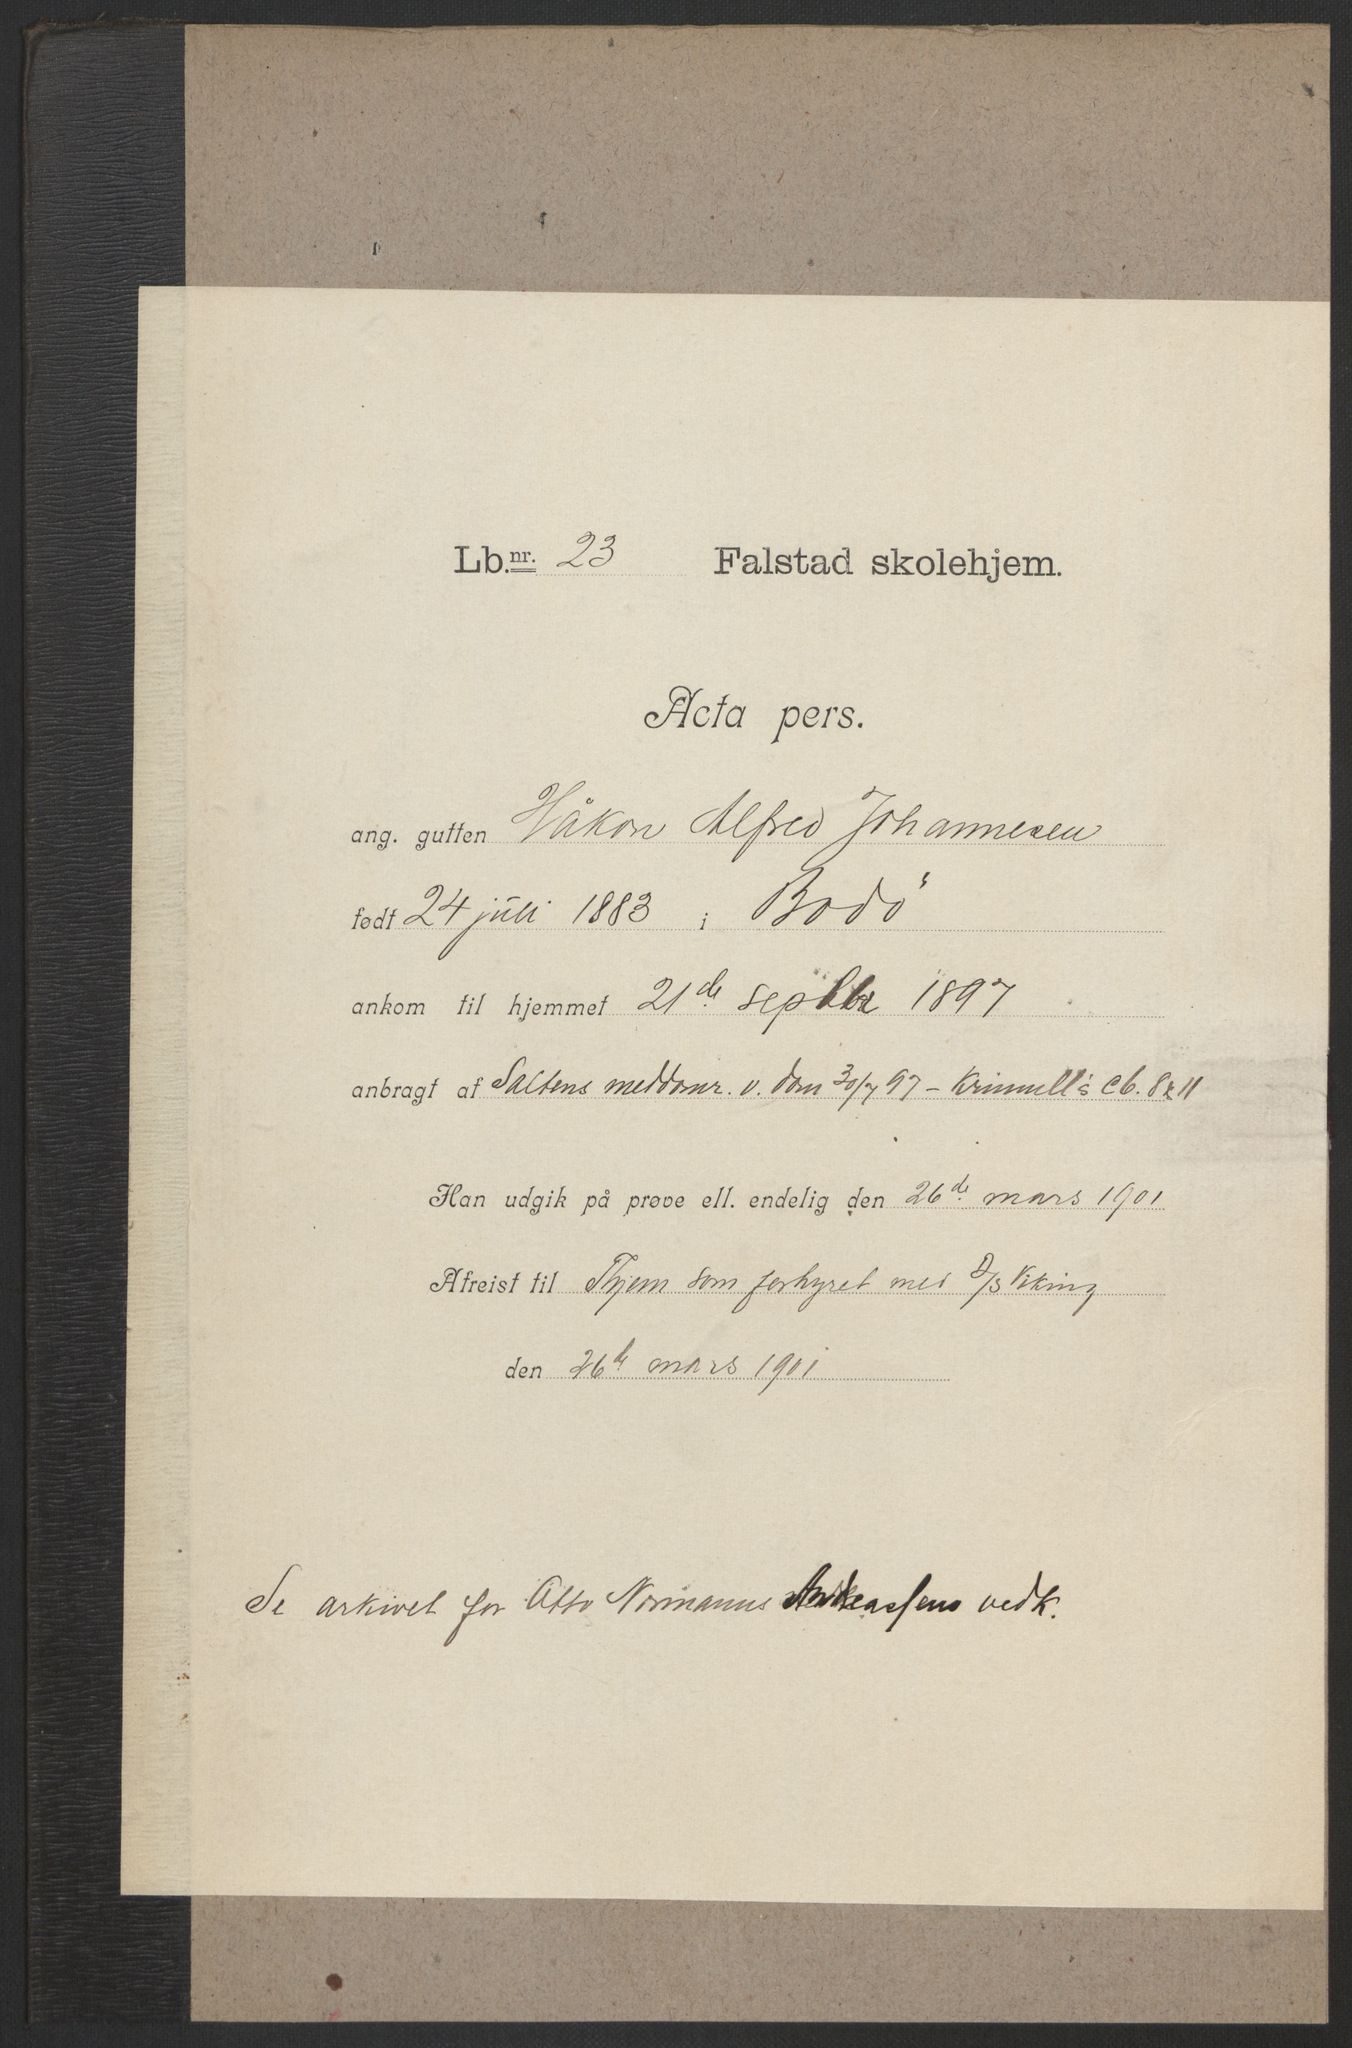 Lb.nr. 23 Falstad skolehjem.
Acta pers.
ang. gutten Håkon Alfred Johannesen
født 24 juli 1883 i Bodö
ankom til hjemmet 21de septbr 1897
anbragt af Saltens meddomr. v. dom 30/7 97 – Kriminell's cb. 8 & 11
Han udgik på prøve ell. endelig den 26de mars 1901
Afreist til Thjem som forhyret med D/S Viking
den 26de mars 1901
Se arkivet for Otto Normanns Andreassens vedk.